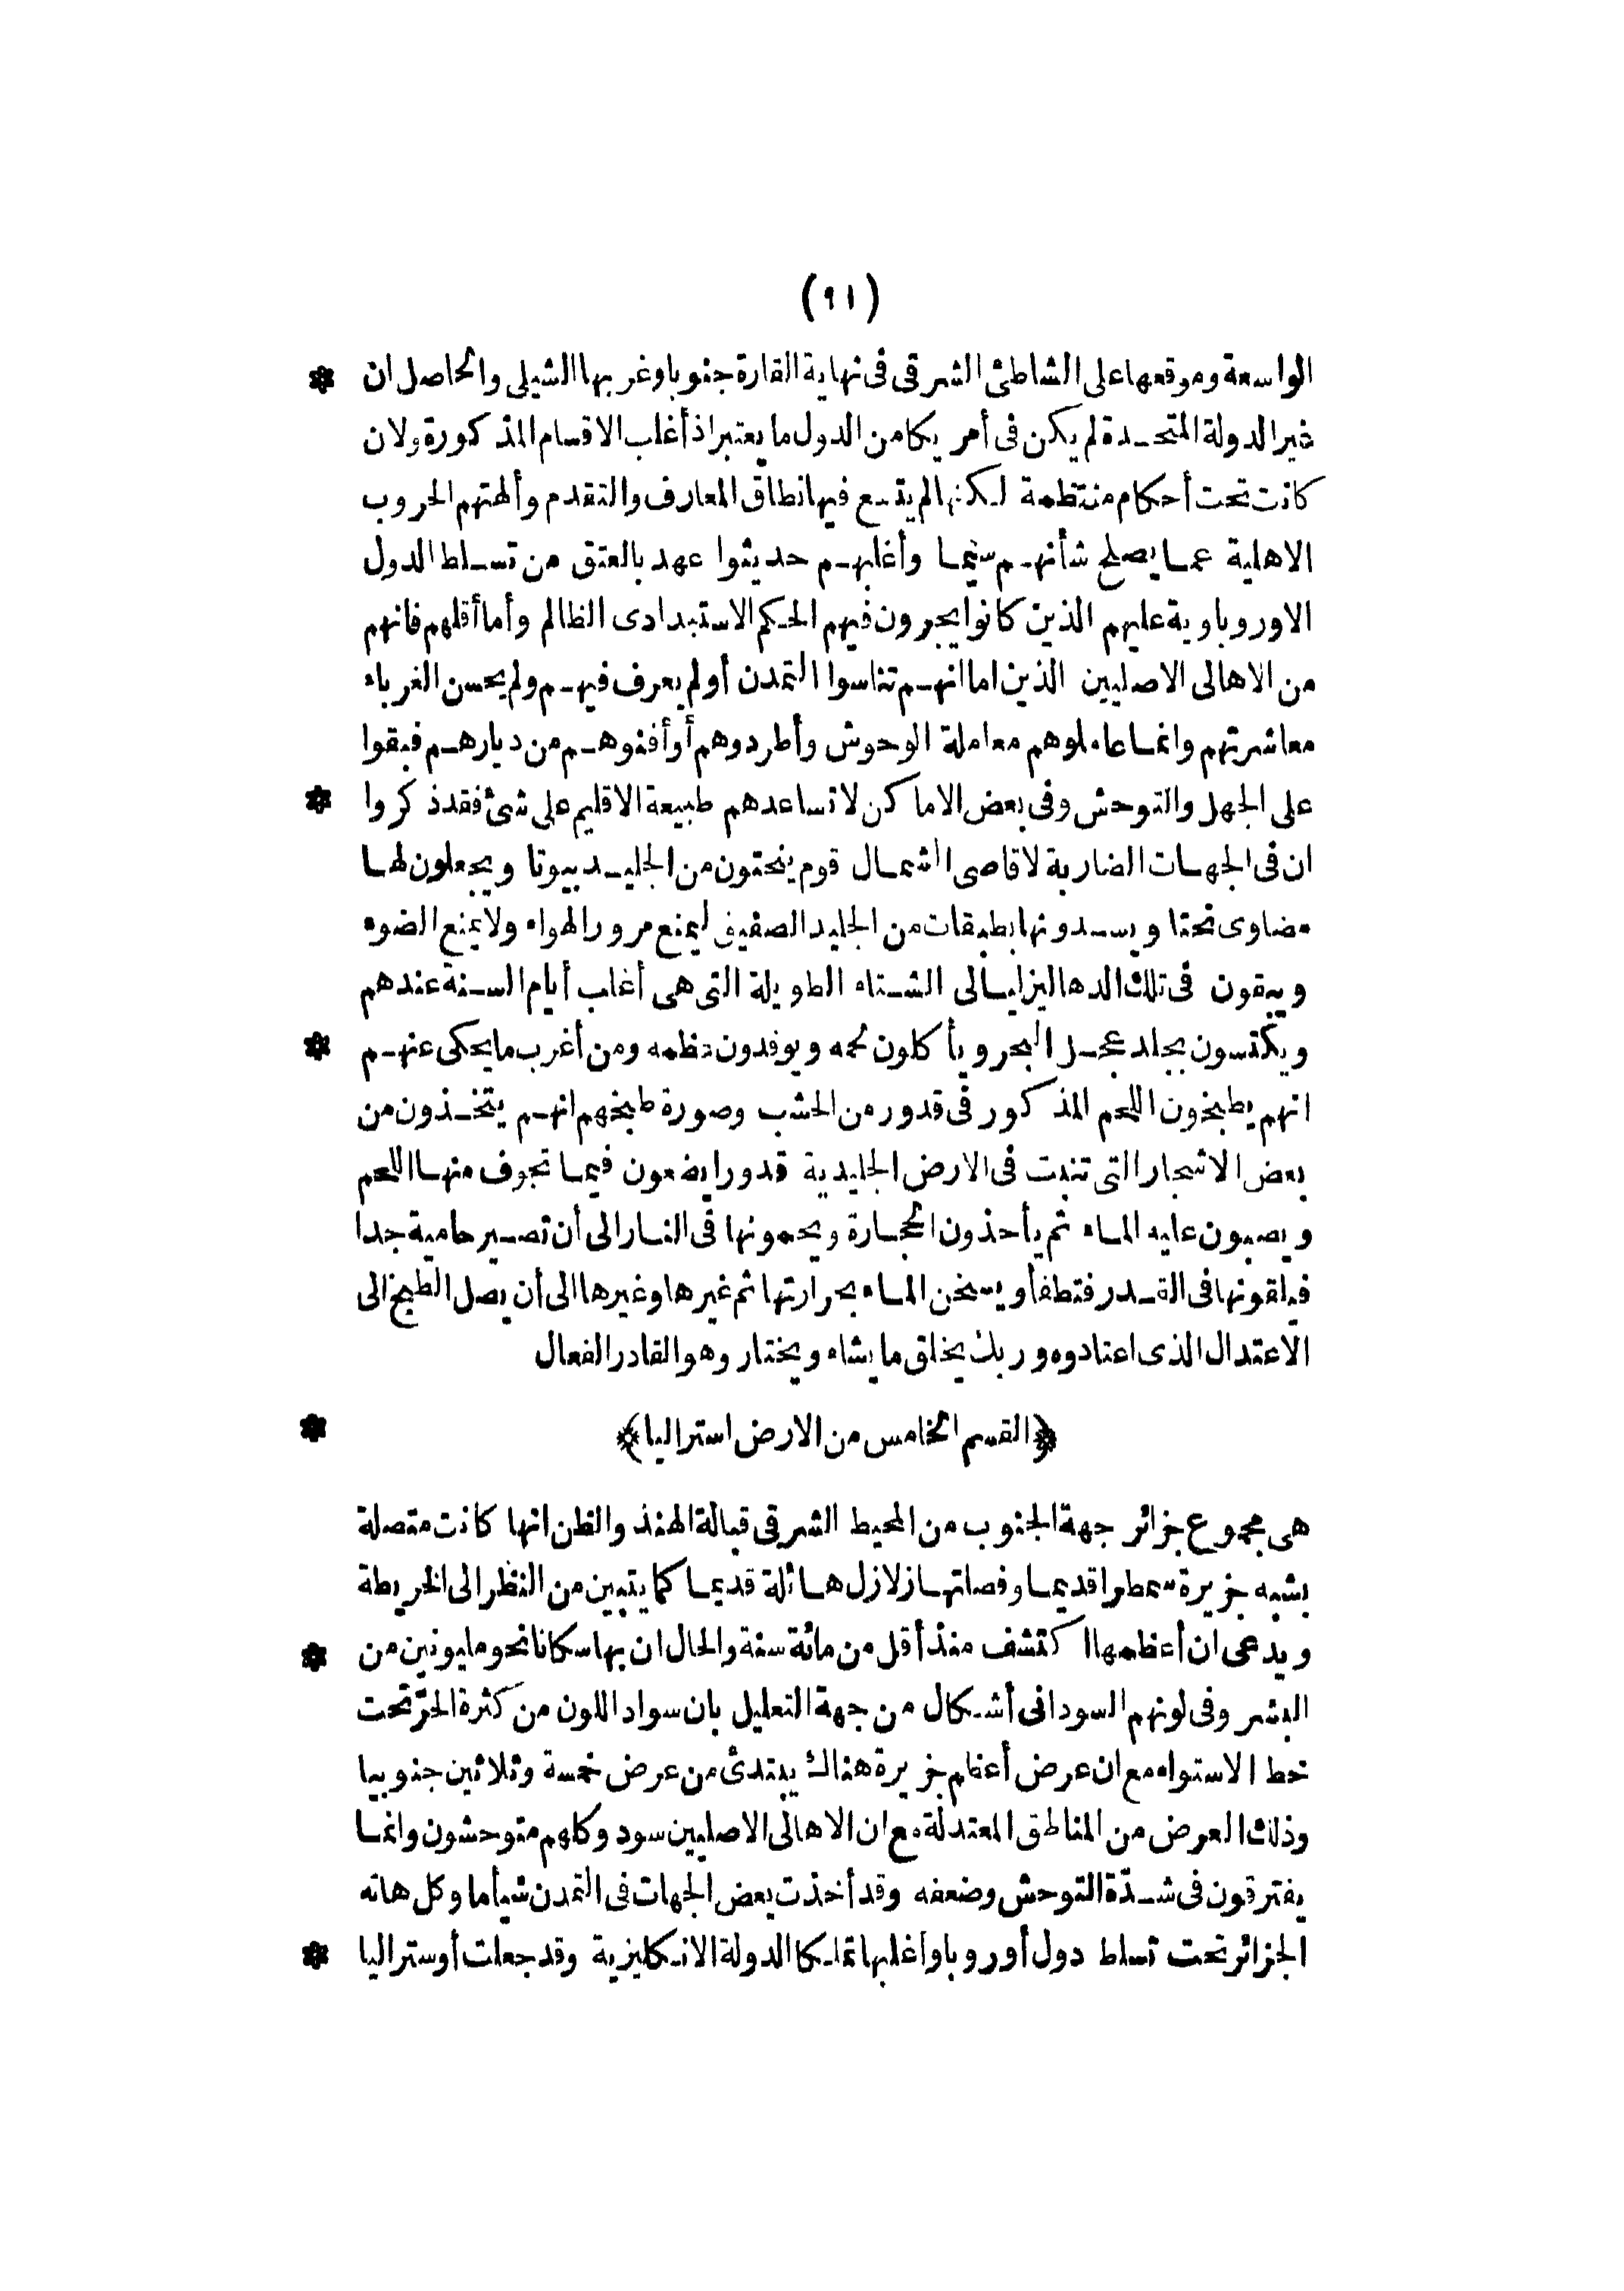 (٩١)
الواسعة وموقعها على الشاطئ الشرقى فى نهاية القارة جنوبا وغربها الشيلى والحاصل ان *
غير الدولة المتحدة لم يكن فى أمريكا من الدول ما يعتبر اذ أغلب الاقسام المذكورة ولان
كانت تحت أحكام منتظمة لكنها لم يتسع فيها نطاق المعارف والتقدم وألهتهم الحروب
الاهلية عما يصلح شأنهم سيما وأغلبهم حديثوا عهد بالعتق من تسلط الدول
الاوروباوية عليهم الذين كانوا يجرون فيهم الحكم الاستبدادى الظالم وأما أقلهم فانهم
من الاهالى الاصليين الذين اما انهم تناسوا التمدن أولم يعرف فيهم ولم يحسن الغرباء
معاشرتهم وانما عاملوهم معاملة الوحوش وأطردوهم أو أفنوهم من ديارهم فبقوا
على الجهل والتوحش وفى بعض الاماكن لا تساعدهم طبيعة الاقليم على شئ فقد ذكروا *
ان فى الجهات الضاربة لاقاصى الشمال قوم ينحتون من الجليد بيوتا ويجعلون لها
مضاوى نحتا ويسدونها بطبقات من الجليد الصفيق ليمنع مرور الهواء ولا يمنع الضوء
ويبقون فى تلك الدهاليز ليالى الشتاء الطويلة التى هى أغلب أيام السنة عندهم
ويكتسون بجلد عجل البحر ويأكلون لحمه ويوقدون عظمه ومن أغرب ما يحكى عنهم *
انهم يطبخون اللحم المذكور فى قدور من الخشب وصورة طبخهم انهم يتخذون من
بعض الاشجار التى تنبت فى الارض الجليدية قدورا يضعون فيما تجوف منها اللحم
ويصبون عليه الماء ثم يأخذون الحجارة ويحمونها فى النار الى أن تصير حامية جدا
فيلقونها فى القدر فتطفأ ويسخن الماء بحرارتها ثم غيرها وغيرها الى أن يصل الطبخ الى
الاعتدال الذى اعتادوه وربك يخلق ما يشاء ويختار وهو القادر الفعال
﴿القسم الخامس من الارض استراليا﴾ *
هى مجموع جزائر جهة الجنوب من المحيط الشرقى قبالة الهند والظن انها كانت متصلة
بشبه جزيرة سمطرا قديما وفصلتها زلازل هائلة قديما كما يتبين من النظر الى الخريطة
ويدعى ان أعظمها اكتشف منذ أقل من مائة سنة والحال ان بها سكانا نحو مليونين من *
البشر وفى لونهم السودانى أشكال من جهة التعليل بان سواد اللون من كثرة الحرّ تحت
خط الاستواء مع ان عرض أعظم جزيرة هناك يبتدئ من عرض خمسة وثلاثين جنوبيا
وذلك العرض من المناطق المعتدلة مع ان الاهالى الاصليين سود وكلهم متوحشون وانما
يفترقون فى شدّة التوحش وضعفه وقد أخذت بعض الجهات فى التمدن شيأما وكل هاته
الجزائر تحت تسلط دول أوروبا وأغلبها تملكا الدولة الانكليزية وقد جعلت أوستراليا *